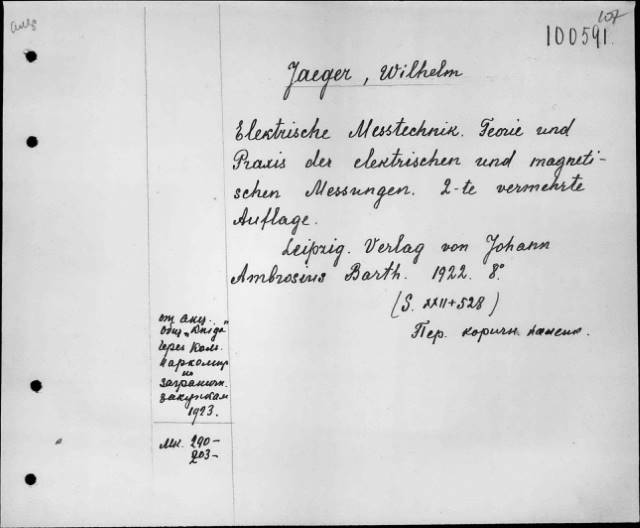 107
100591
Jaeger, Wilhelm
Elektrische Messtechnik. Teorie und
Praxis der elektrischen und magneti-
schen Messungen. 2-te vermehrte
Auflage.
Leipzig. Verlag von Johann
Ambrosius Barth. 1922. 8°
(S. XXII+528)
Пер. коричн.
от акц.
общ. „Книга"
через Ком.
по
загранич.
закупкам
1923.
Мк. 290-
203-